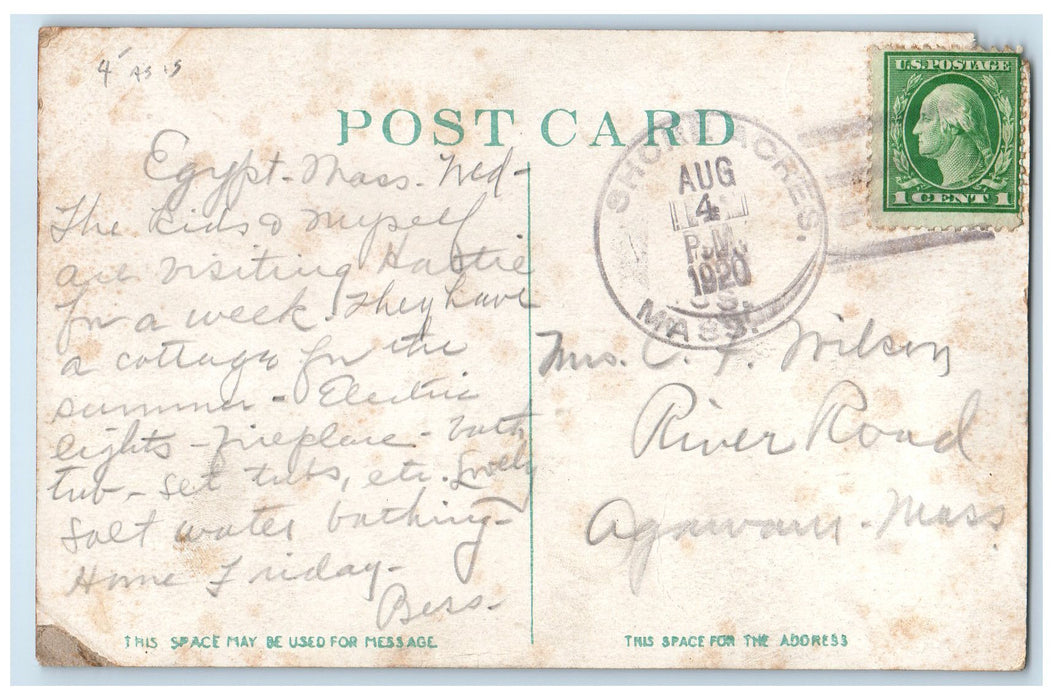 4 AS IS
U.S. POSTAGE
1 CENT 1
POST CARD
SHORE ACRES,
AUG
4
P.M.
1920
MASS.
Egypt - Mass. Wed -
The Kids & Myself
are visiting Hattie
for a week. They have
a cottage for the
summer - Electric
lights - fireplace - bath
tub - set tubs, etc. Lovely
salt water bathing -
Home Friday -
Bess -
Mrs. C. F. Wilson
River Road
Agawam - Mass
THIS SPACE MAY BE USED FOR MESSAGE.
THIS SPACE FOR THE ADDRESS